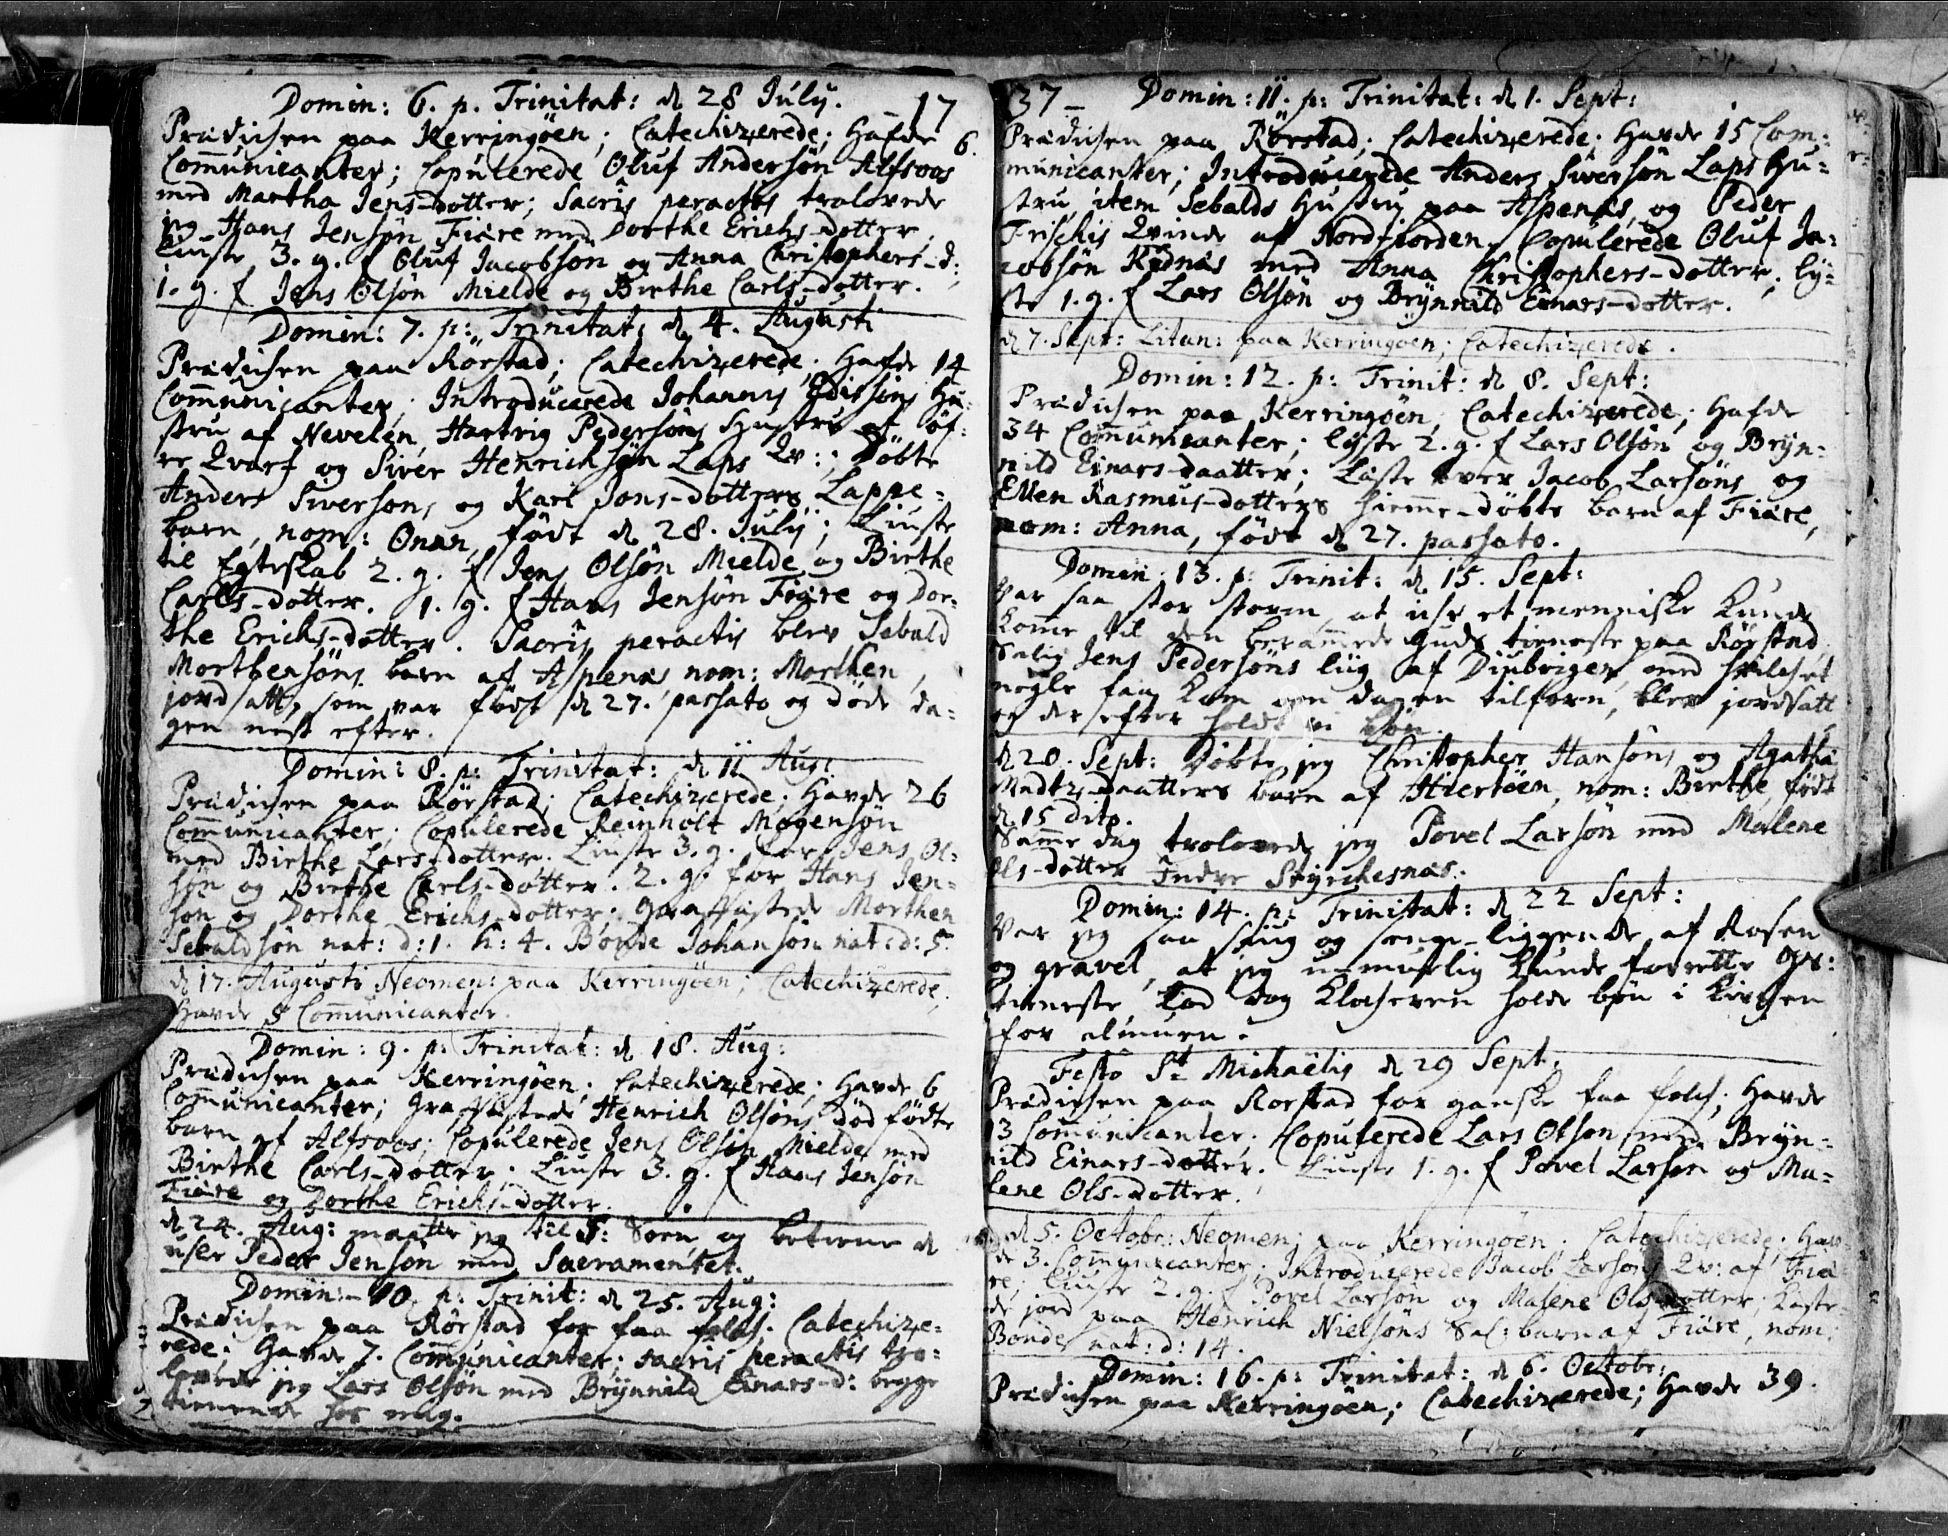 Domin: 6. p. Trinitat: d 28 July. 17
Prædichen paa Kerringöen; Catechizerede; Hafde 6.
Communicanter; Copulerede Oluf Andersön Alfsoos
med Martha Jens-dotter; Sacris peractis trolovede
jeg Hans Jensön Fiære med Dorthe Erichs-dotter.
Liuste 3. g. f Oluf Jacobsön og Anna Christophers-d:;
1. g. f Jens Olsön Mielde og Birthe Carls-dotter.
Domin: 7. p: Trinitat: d 4. Augusti
Prædichen paa Rörstad; Catechizerede; Hafde 14
Communicanter; Introducerede Johannis Hu-
stru af Nevelen, Hartvig Pedersöns Hustru af Öf-
re Qvarf og Siver Henrichsön Laps Qv:; Döbte
Anders Siversöns og Kari Jons-dotters Lappe-
barn, nom: Onar, födt d 28. July; Liuste
til Egteskab 2. g. f Jens Olsön Mielde og Birthe
Carls-dotter. 1. g. f Hans Jensön Fiære og Dor-
the Erichs-dotter. Sacris peractis blev Sebald
Morthensöns barn af Aspenæs nom: Morthen,
jordsatt, som var född d 27. passato og döde da-
gen nest efter.
Domin: 8. p: Trinitat: d 11 Aug:
Prædichen paa Rörstad; Catechizerede; Havde 26
Communicanter; Copulerede Reinholt Mogensön
med Birthe Lars-dotter. Liuste 3. g. for Jens Ol-
sön og Birthe Carls-dotter. 2. g. for Hans Jen-
sön og Dorthe Erichs-dotter; Graffæstede Morthen
Sebaldsön nat: d: 1. h: 4. Bonde Johansön nat: d: 5.
d 17. Augusti Neomen: paa Kerringöen; Catechizerede,
Havde 8 Communicanter.
Domin: 9. p: Trinitat: d 18. Aug:
Prædichen paa Kerringöen; Catechizerede; Havde 6
Communicanter; Graffæstede Henrich Olsöns död födte
barn af Alfsoos; Copulerede Jens Olsön Mielde med
Birthe Carls-dotter; Liuste 3. g. f Hans Jensön
Fiære og Dorthe Erichs-dotter.
d 24. Aug: maatte jeg til S: Soen og betiene d
usle Peder Jensön med Sacramentet.
Domin: 10. p: Trinit: d 25. Aug:
Prædichen paa Rörstad for faa folch; Catechize-
rede; Havde 7. Communicanter; sacris peractis tro-
lovede jeg Lars Olsön med Brÿnnild Einars-d: begge
tienende hos mig.
37 - Domin: 11. p: Trinitat: d 1. Sept:
Prædichen paa Rörstad; Catechizerede; Havde 15 Com-
municanter; Introducerede Anders Siversön Laps Hu-
stru, item Sebalds Hustru paa Aspenæs, og Peder
Frischis Qvinde af Nordfiorden. Copulerede Oluf Ja-
cobsön Kodnæs med Anna Christophers-dotter; ly-
ste 1. g. f Lars Olsön og Brÿnnild Einars-dotter.
d 7. Sept: Litan: paa Kerringöen; Catechizerede.
Domin: 12. p: Trinit: d 8. Sept:
Prædichen paa Kerringöen, Catechizerede; Hafde
34 Communicanter; lyste 2. g. f Lars Olsön og Brÿn-
nild Einars-daatter; Læste over Jacob Larsöns og
Ellen Rasmus-dotters hiemme-döbte barn af Fiære,
nom: Anna, födt d 27. passato.
Domin: 13. p: Trinit: d 15. Sept:
Var saa stor storm, at iche et menniske kunde
komme til den berammede Guds tieneste paa Rörstad.
Salig Jens Pedersöns liig af Diubvigen, med hvilchet
nogle faa kom om dagen tilforn, blev jordsatt
og derefter holdt vi bön.
d 20. Sept: Döbte jeg Christopher Hansöns og Agatha
Madtz-daatters barn af Hiertöen, nom: Birthe, födt
d 15 dito.
Samme dag trolovede jeg Povel Larsön med Malene
Ols-dotter Indre Styrchesnæs.
Domin: 14. p: Trinitat: d 22 Sept:
Var jeg saa siug og senge-liggende af Rosen
og gravel, at jeg u-muelig kunde forrette Gs:
tieneste. Lod dog Klocheren holde bön i Kirchen
for almuen.
Festo St Michaëlis d 29 Sept:
Prædichen paa Rorstad for ganske faa folch; Havde
13 Communicanter; Copulerede Lars Olson med Brÿn-
nild Einars-dotter. Liuste 1. g. f Povel Larsen og Ma-
lene Ols-dotter.
d 5. Octobr: Neomen: paa Kerringöen. Catechizerede. Hav-
de 3. Communicanter; Introducerede Jacob Larsöns Qv: af Fiæ-
re; Liuste 2. g. f Povel Larsön og Malene Ols-dotter; Kaste-
de jord paa Henrich Nielsöns Sal: barn af Fiære, nom:
Bonde nat: d: 14.
Domin: 16. p: Trinitat: d 6. Octobr:
Prædichen paa Kerringöen; Catechizerede; Havde 39.